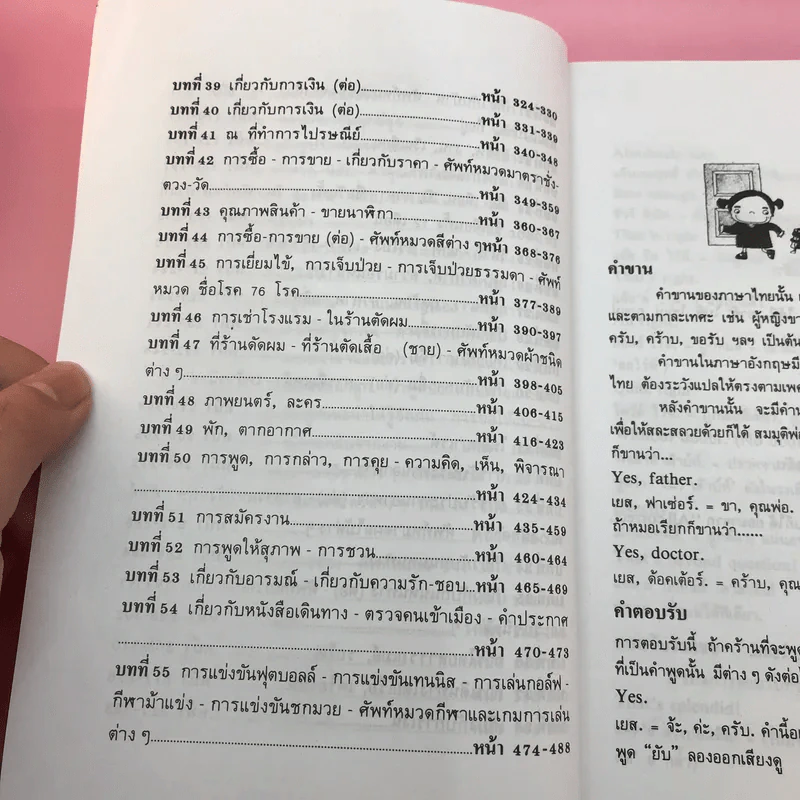 บทที่ 39 เกี่ยวกับการเงิน (ต่อ)..............................หน้า 324-330
บทที่ 40 เกี่ยวกับการเงิน (ต่อ)..............................หน้า 331-339
บทที่ 41 ณ ที่ทำการไปรษณีย์..............................หน้า 340-348
บทที่ 42 การซื้อ - การขาย - เกี่ยวกับราคา - ศัพท์หมวดมาตราชั่ง-
ตวง-วัด..............................หน้า 349-359
บทที่ 43 คุณภาพสินค้า - ขายนาฬิกา....................หน้า 360-367
บทที่ 44 การซื้อ-การขาย (ต่อ) - ศัพท์หมวดสีต่าง ๆหน้า 368-376
บทที่ 45 การเยี่ยมไข้, การเจ็บป่วย - การเจ็บป่วยธรรมดา - ศัพท์
หมวด ชื่อโรค 76 โรค..............................หน้า 377-389
บทที่ 46 การเช่าโรงแรม - ในร้านตัดผม...............หน้า 390-397
บทที่ 47 ที่ร้านตัดผม - ที่ร้านตัดเสื้อ (ชาย) - ศัพท์หมวดผ้าชนิด
ต่าง ๆ..............................หน้า 398-405
บทที่ 48 ภาพยนตร์, ละคร..............................หน้า 406-415
บทที่ 49 พัก, ตากอากาศ..............................หน้า 416-423
บทที่ 50 การพูด, การกล่าว, การคุย - ความคิด, เห็น, พิจารณา
..............................หน้า 424-434
บทที่ 51 การสมัครงาน..............................หน้า 435-459
บทที่ 52 การพูดให้สุภาพ - การชวน....................หน้า 460-464
บทที่ 53 เกี่ยวกับอารมณ์ - เกี่ยวกับความรัก-ชอบ...หน้า 465-469
บทที่ 54 เกี่ยวกับหนังสือเดินทาง - ตรวจคนเข้าเมือง - คำประกาศ
..............................หน้า 470-473
บทที่ 55 การแข่งขันฟุตบอลล์ - การแข่งขันเทนนิส - การเล่นกอล์ฟ-
กีฬาม้าแข่ง - การแข่งขันชกมวย - ศัพท์หมวดกีฬาและเกมการเล่น
ต่าง ๆ..............................หน้า 474-488
คำขาน
คำขานของภาษาไทยนั้น
และตามกาละเทศะ เช่น ผู้หญิงขา
ครับ, คร้าบ, ขอรับ ฯลฯ เป็นต้น
คำขานในภาษาอังกฤษมี
ไทย ต้องระวังแปลให้ตรงตามเพศ
หลังคำขานนั้น จะมีคำน
เพื่อให้สละสลวยด้วยก็ได้ สมมุติพ่อ
ก็ขานว่า...
Yes, father.
เยส, ฟาเซ่อร์. = ขา, คุณพ่อ.
ถ้าหมอเรียกก็ขานว่า......
Yes, doctor.
เยส, ด้อคเต้อร์. = คร้าบ, คุณ
คำตอบรับ
การตอบรับนี้ ถ้าคร้านที่จะพูด
ที่เป็นคำพูดนั้น มีต่าง ๆ ดังต่อไ
Yes.
เยส. = จ้ะ, ค่ะ, ครับ. คำนี้อย
พูด “ยับ” ลองออกเสียงดู